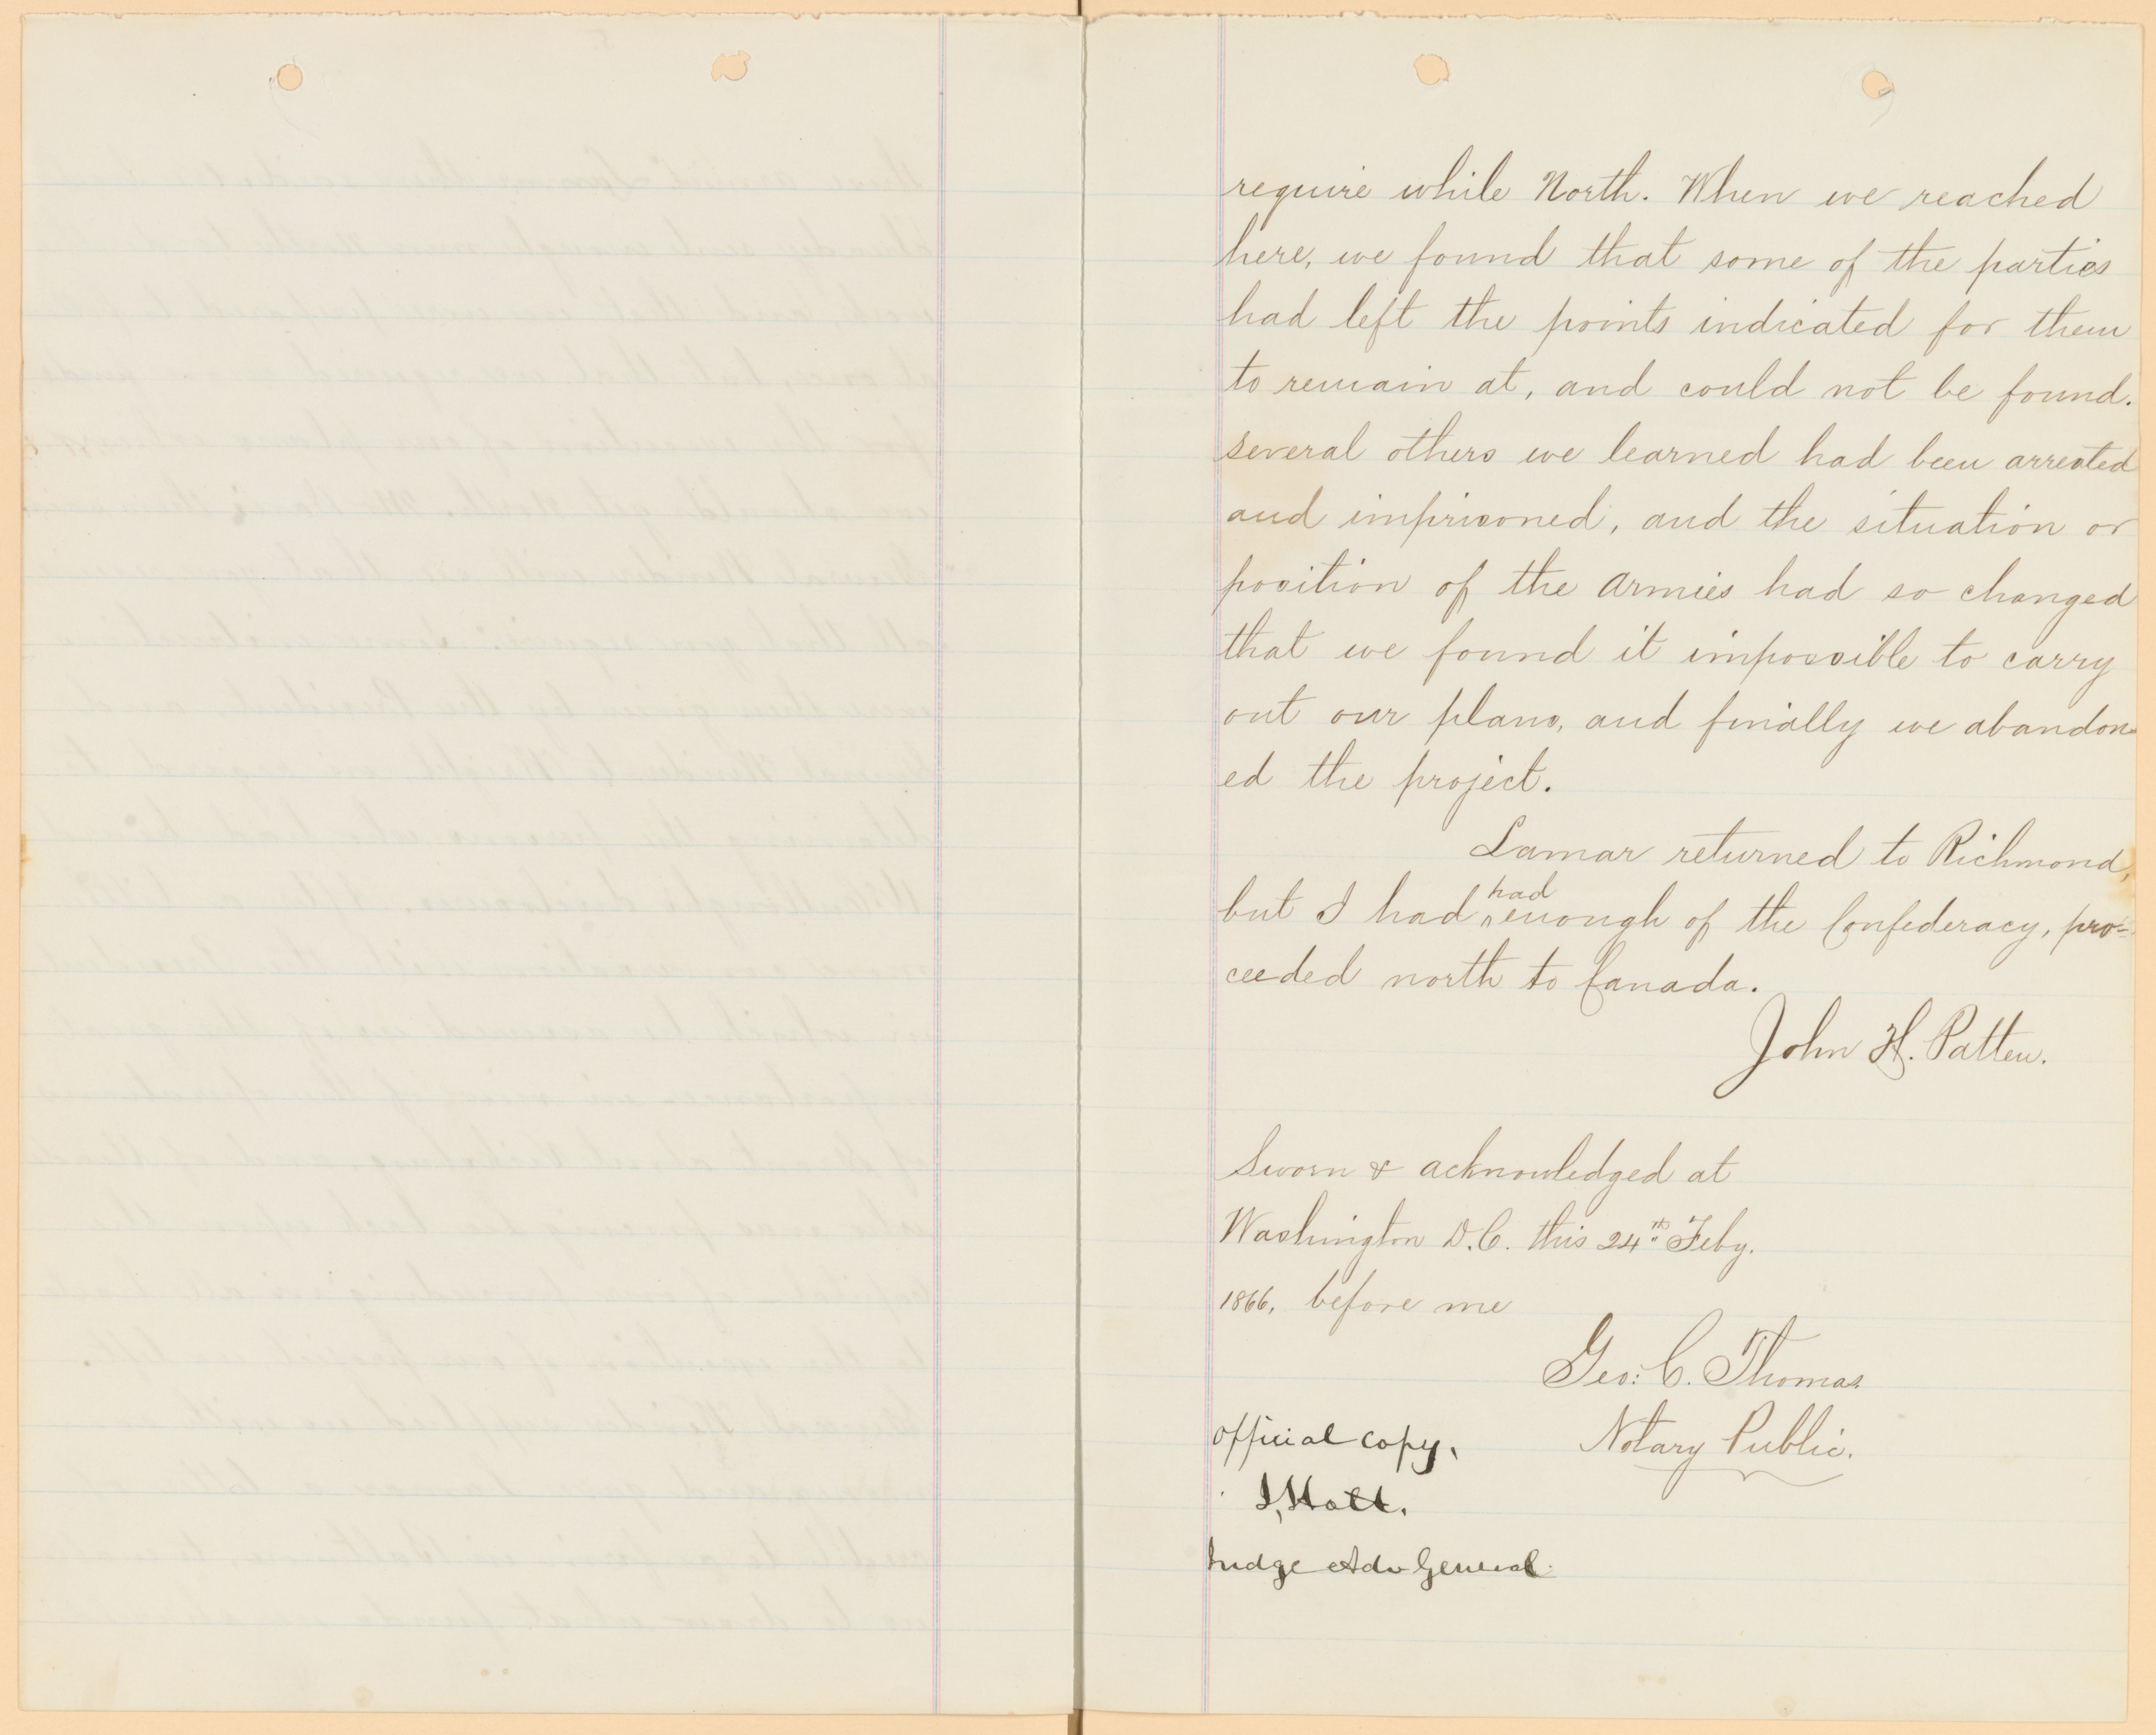 require while North. When we reached
here, we found that some of the parties
had left the points indicated for them
to remain at, and could not be found.
several others we learned had been arrested
and imprisoned, and the situation or
position of the armies had so changed
that we found it impossible to carry
out our plans, and finally we abandon-
ed the project.
Lamar returned to Richmond,
but I had had enough of the Confederacy, pro-
ceeded north to Canada.
John H. Patten.
Sworn & acknowledged at
Washington D.C. this 24th Feby.
1866, before me
Geo: C. Thomas
Notary Public.
official copy,
J, Holt.
Judge Adv General